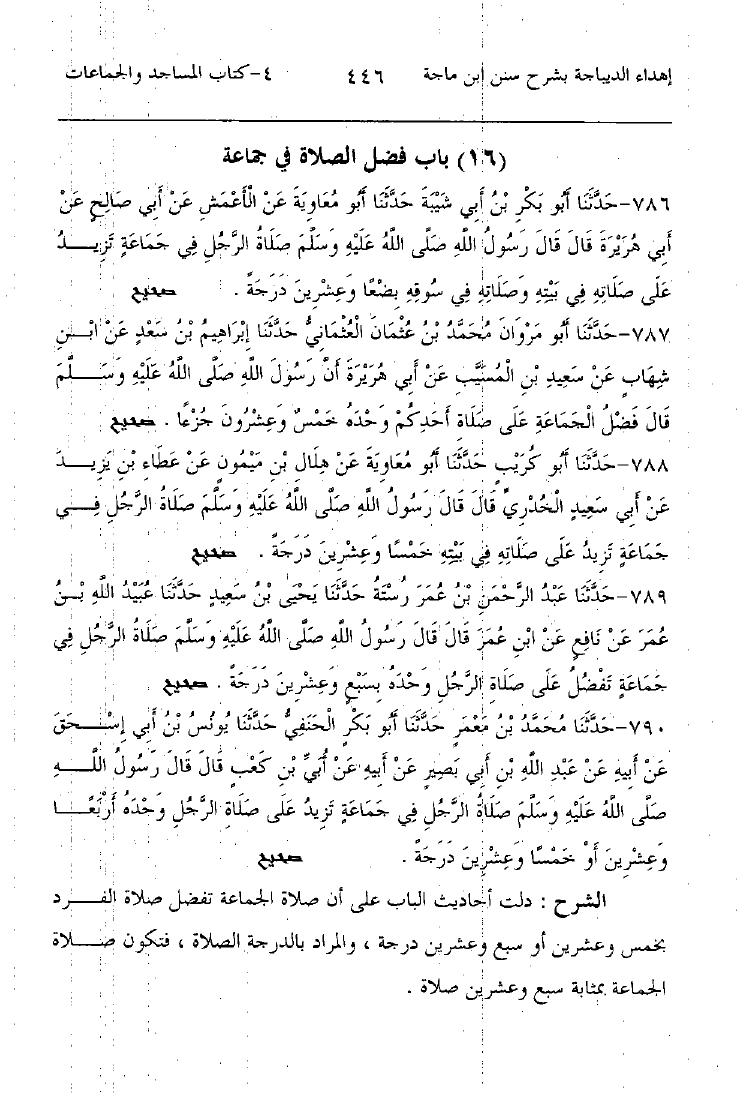 إهداء الديباجة بشرح سنن ابن ماجة ٤٤٦ ٤- كتاب المساجد والجماعات
(١٦) باب فضل الصلاة في جماعة
٧٨٦- حَدَّثَنَا أَبُو بَكْرِ بْنُ أَبِي شَيْبَةَ حَدَّثَنَا أَبُو مُعَاوِيَةَ عَنْ الْأَعْمَشِ عَنْ أَبِي صَالِحٍ عَنْ
أَبِي هُرَيْرَةَ قَالَ قَالَ رَسُولُ اللهِ صَلَّى اللهُ عَلَيْهِ وَسَلَّمَ صَلَاةُ الرَّجُلِ فِي جَمَاعَةٍ تَزِيدُ
عَلَى صَلَاتِهِ فِي بَيْتِهِ وَصَلَاتِهِ فِي سُوقِهِ بِضْعًا وَعِشْرِينَ دَرَجَةً . صحيح
٧٨٧- حَدَّثَنَا أَبُو مَرْوَانَ مُحَمَّدُ بْنُ عُثْمَانَ الْعُثْمَانِيُّ حَدَّثَنَا إِبْرَاهِيمُ بْنُ سَعْدٍ عَنْ ابْنِ
شِهَابٍ عَنْ سَعِيدِ بْنِ الْمُسَيَّبِ عَنْ أَبِي هُرَيْرَةَ أَنَّ رَسُولَ اللهِ صَلَّى اللهُ عَلَيْهِ وَسَلَّمَ
قَالَ فَضْلُ الْجَمَاعَةِ عَلَى صَلَاةِ أَحَدِكُمْ وَحْدَهُ خَمْسٌ وَعِشْرُونَ جُزْءًا . صحيح
٧٨٨- حَدَّثَنَا أَبُو كُرَيْبٍ حَدَّثَنَا أَبُو مُعَاوِيَةَ عَنْ هِلَالِ بْنِ مَيْمُونٍ عَنْ عَطَاءِ بْنِ يَزِيدَ
عَنْ أَبِي سَعِيدٍ الْخُدْرِيِّ قَالَ قَالَ رَسُولُ اللهِ صَلَّى اللهُ عَلَيْهِ وَسَلَّمَ صَلَاةُ الرَّجُلِ فِي
جَمَاعَةٍ تَزِيدُ عَلَى صَلَاتِهِ فِي بَيْتِهِ خَمْسًا وَعِشْرِينَ دَرَجَةً . صحيح
٧٨٩- حَدَّثَنَا عَبْدُ الرَّحْمَنِ بْنُ عُمَرَ رُسْتَةُ حَدَّثَنَا يَحْيَى بْنُ سَعِيدٍ حَدَّثَنَا عُبَيْدُ اللهِ بْنُ
عُمَرَ عَنْ نَافِعٍ عَنْ ابْنِ عُمَرَ قَالَ قَالَ رَسُولُ اللهِ صَلَّى اللهُ عَلَيْهِ وَسَلَّمَ صَلَاةُ الرَّجُلِ فِي
جَمَاعَةٍ تَفْضُلُ عَلَى صَلَاةِ الرَّجُلِ وَحْدَهُ بِسَبْعٍ وَعِشْرِينَ دَرَجَةً . صحيح
٧٩٠- حَدَّثَنَا مُحَمَّدُ بْنُ مَعْمَرٍ حَدَّثَنَا أَبُو بَكْرٍ الْحَنَفِيُّ حَدَّثَنَا يُونُسُ بْنُ أَبِي إِسْحَقَ
عَنْ أَبِيهِ عَنْ عَبْدِ اللهِ بْنِ أَبِي بَصِيرٍ عَنْ أَبِيهِ عَنْ أُبَيِّ بْنِ كَعْبٍ قَالَ قَالَ رَسُولُ اللهِ
صَلَّى اللهُ عَلَيْهِ وَسَلَّمَ صَلَاةُ الرَّجُلِ فِي جَمَاعَةٍ تَزِيدُ عَلَى صَلَاةِ الرَّجُلِ وَحْدَهُ أَرْبَعًا
وَعِشْرِينَ أَوْ خَمْسًا وَعِشْرِينَ دَرَجَةً . صحيح
الشرح : دلت أحاديث الباب على أن صلاة الجماعة تفضل صلاة الفرد
بخمس وعشرين أو سبع وعشرين درجة ، والمراد بالدرجة الصلاة ، فتكون صلاة
الجماعة بمثابة سبع وعشرين صلاة .